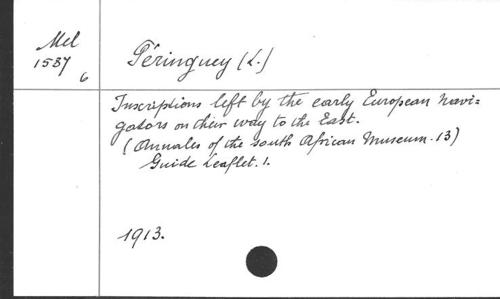 Mel
1587
6
Péringuey (L.)
Inscriptions left by the early European navi-
gators on their way to the East.
(Annales of the south African Museum. 13)
Guide Leaflet. 1.
1913.